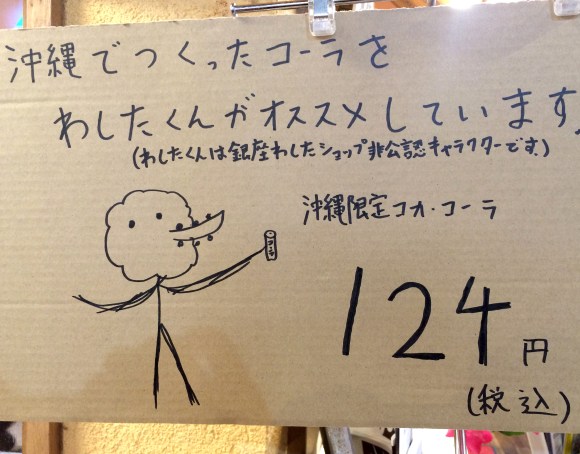 沖縄でつくったコーラを
わしたくんがオススメしています。
(わしたくんは銀座わしたショップ非公認キャラクターです。)
沖縄限定コカ・コーラ
124円
(税込)